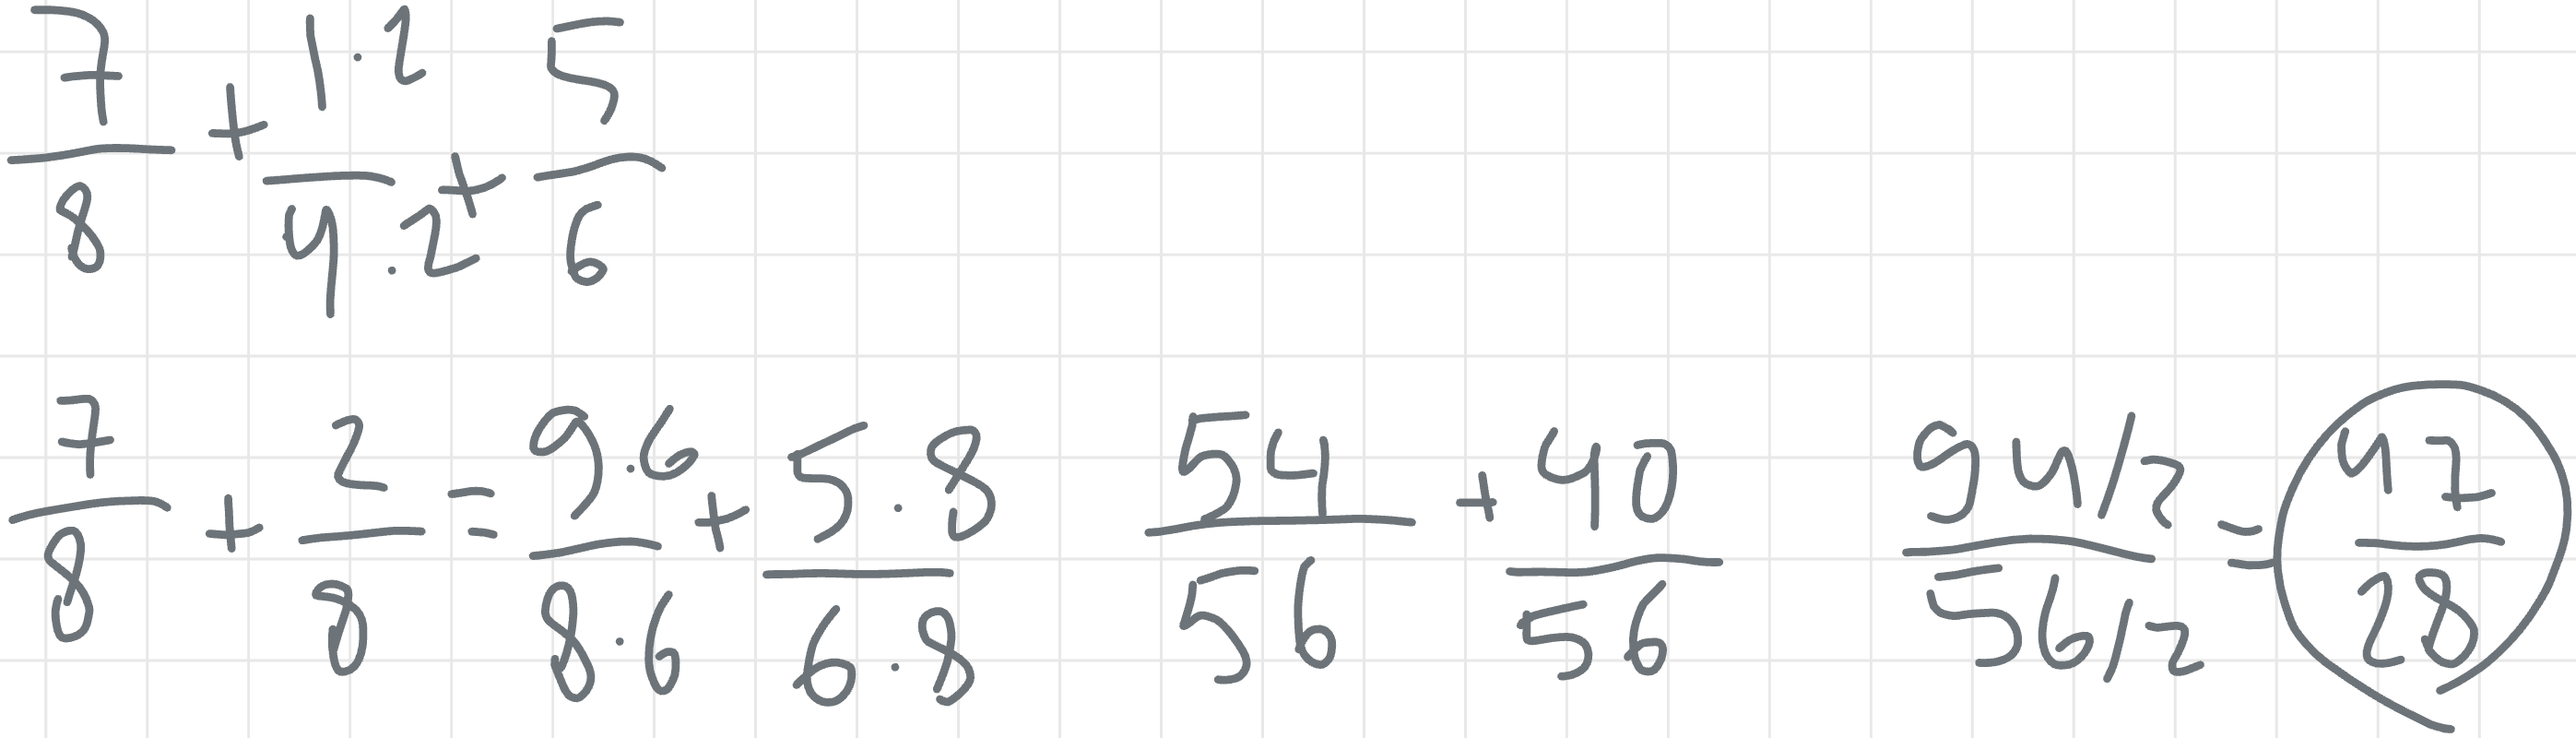 7/8 + 1·2/4·2 + 5/6
7/8 + 2/8 = 9·6/8·6 + 5·8/6·8 54/56 + 40/56 94/2/56/2 = 47/28